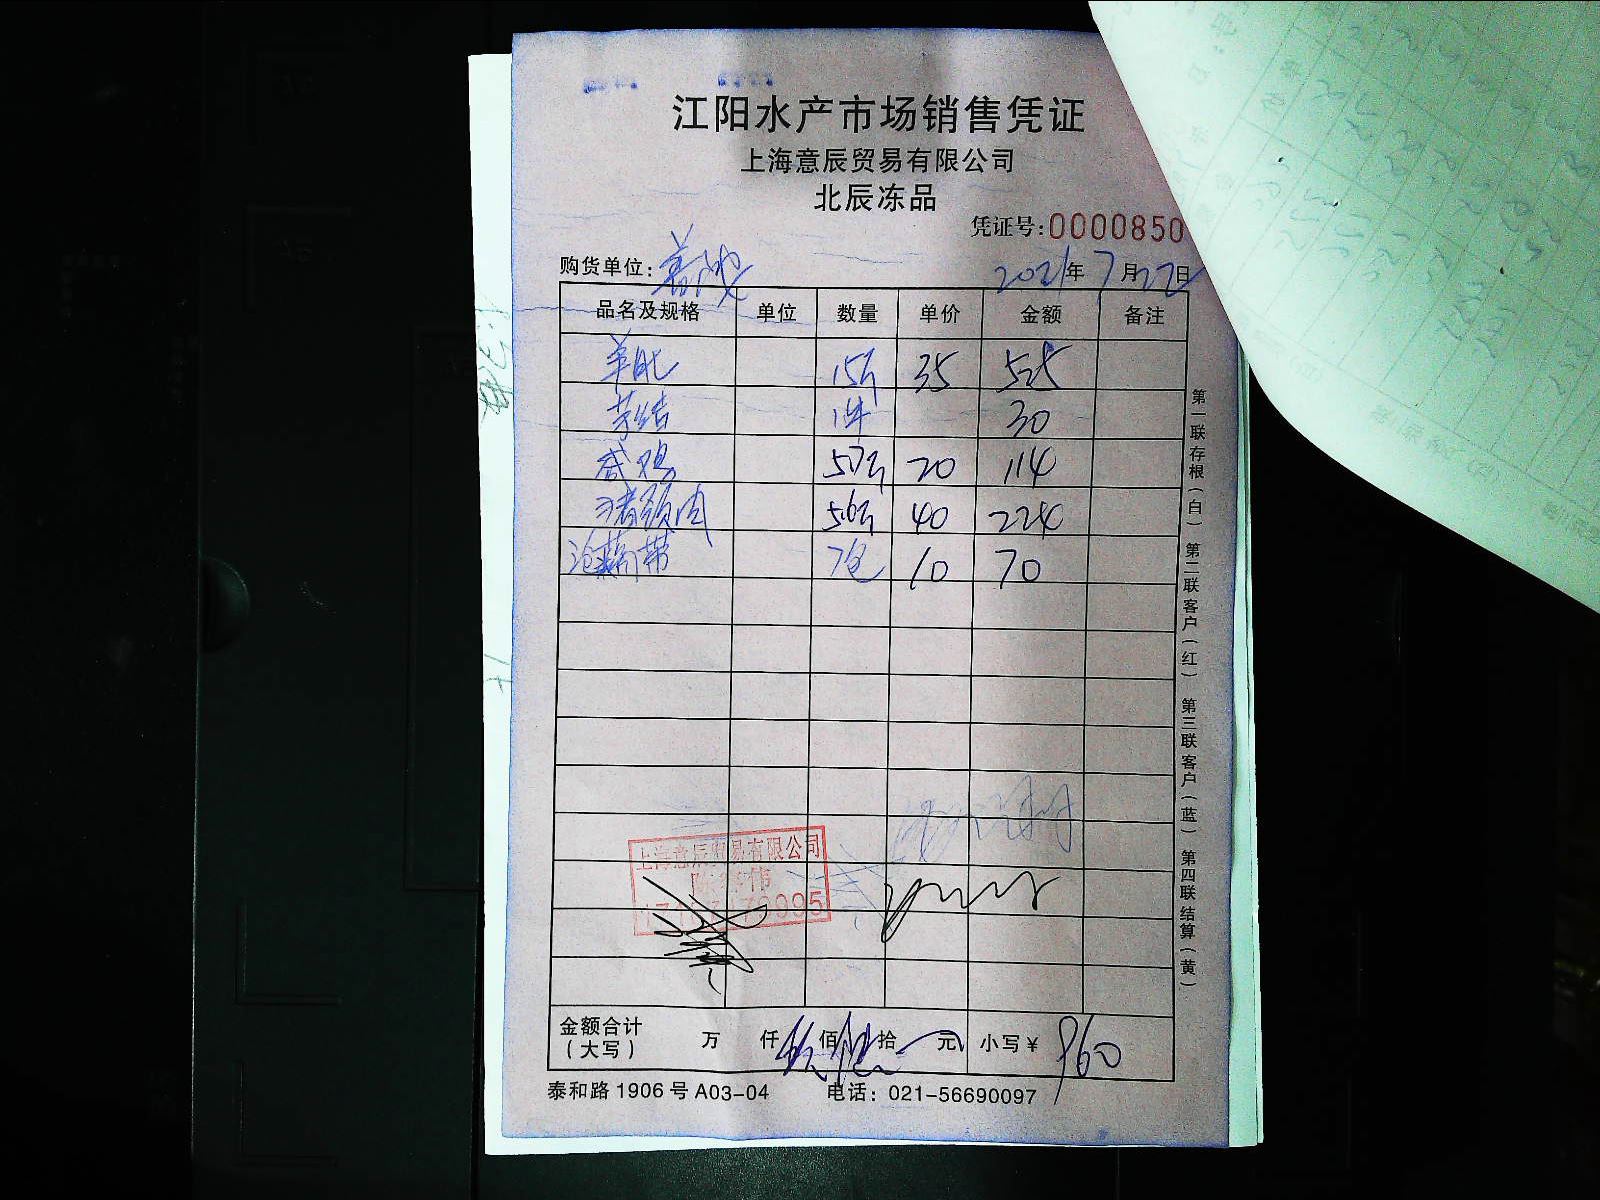 江阳水产市场销售凭证
上海意辰贸易有限公司
北辰冻品
凭证号:0000850
购货单位:
2021年7月22日
品名及规格 单位 数量 单价 金额 备注
羊肚 15斤 35 525
1件 30
咸鸡 5.7斤 20 114
猪颈肉 5.6斤 40 224
7包 10 70
第一联存根(白) 第二联客户(红) 第三联客户(蓝) 第四联结算(黄)
上海意辰贸易有限公司
金额合计(大写) 万 仟 玖佰 陆拾 元 小写¥ 960
泰和路1906号A03-04 电话:021-56690097